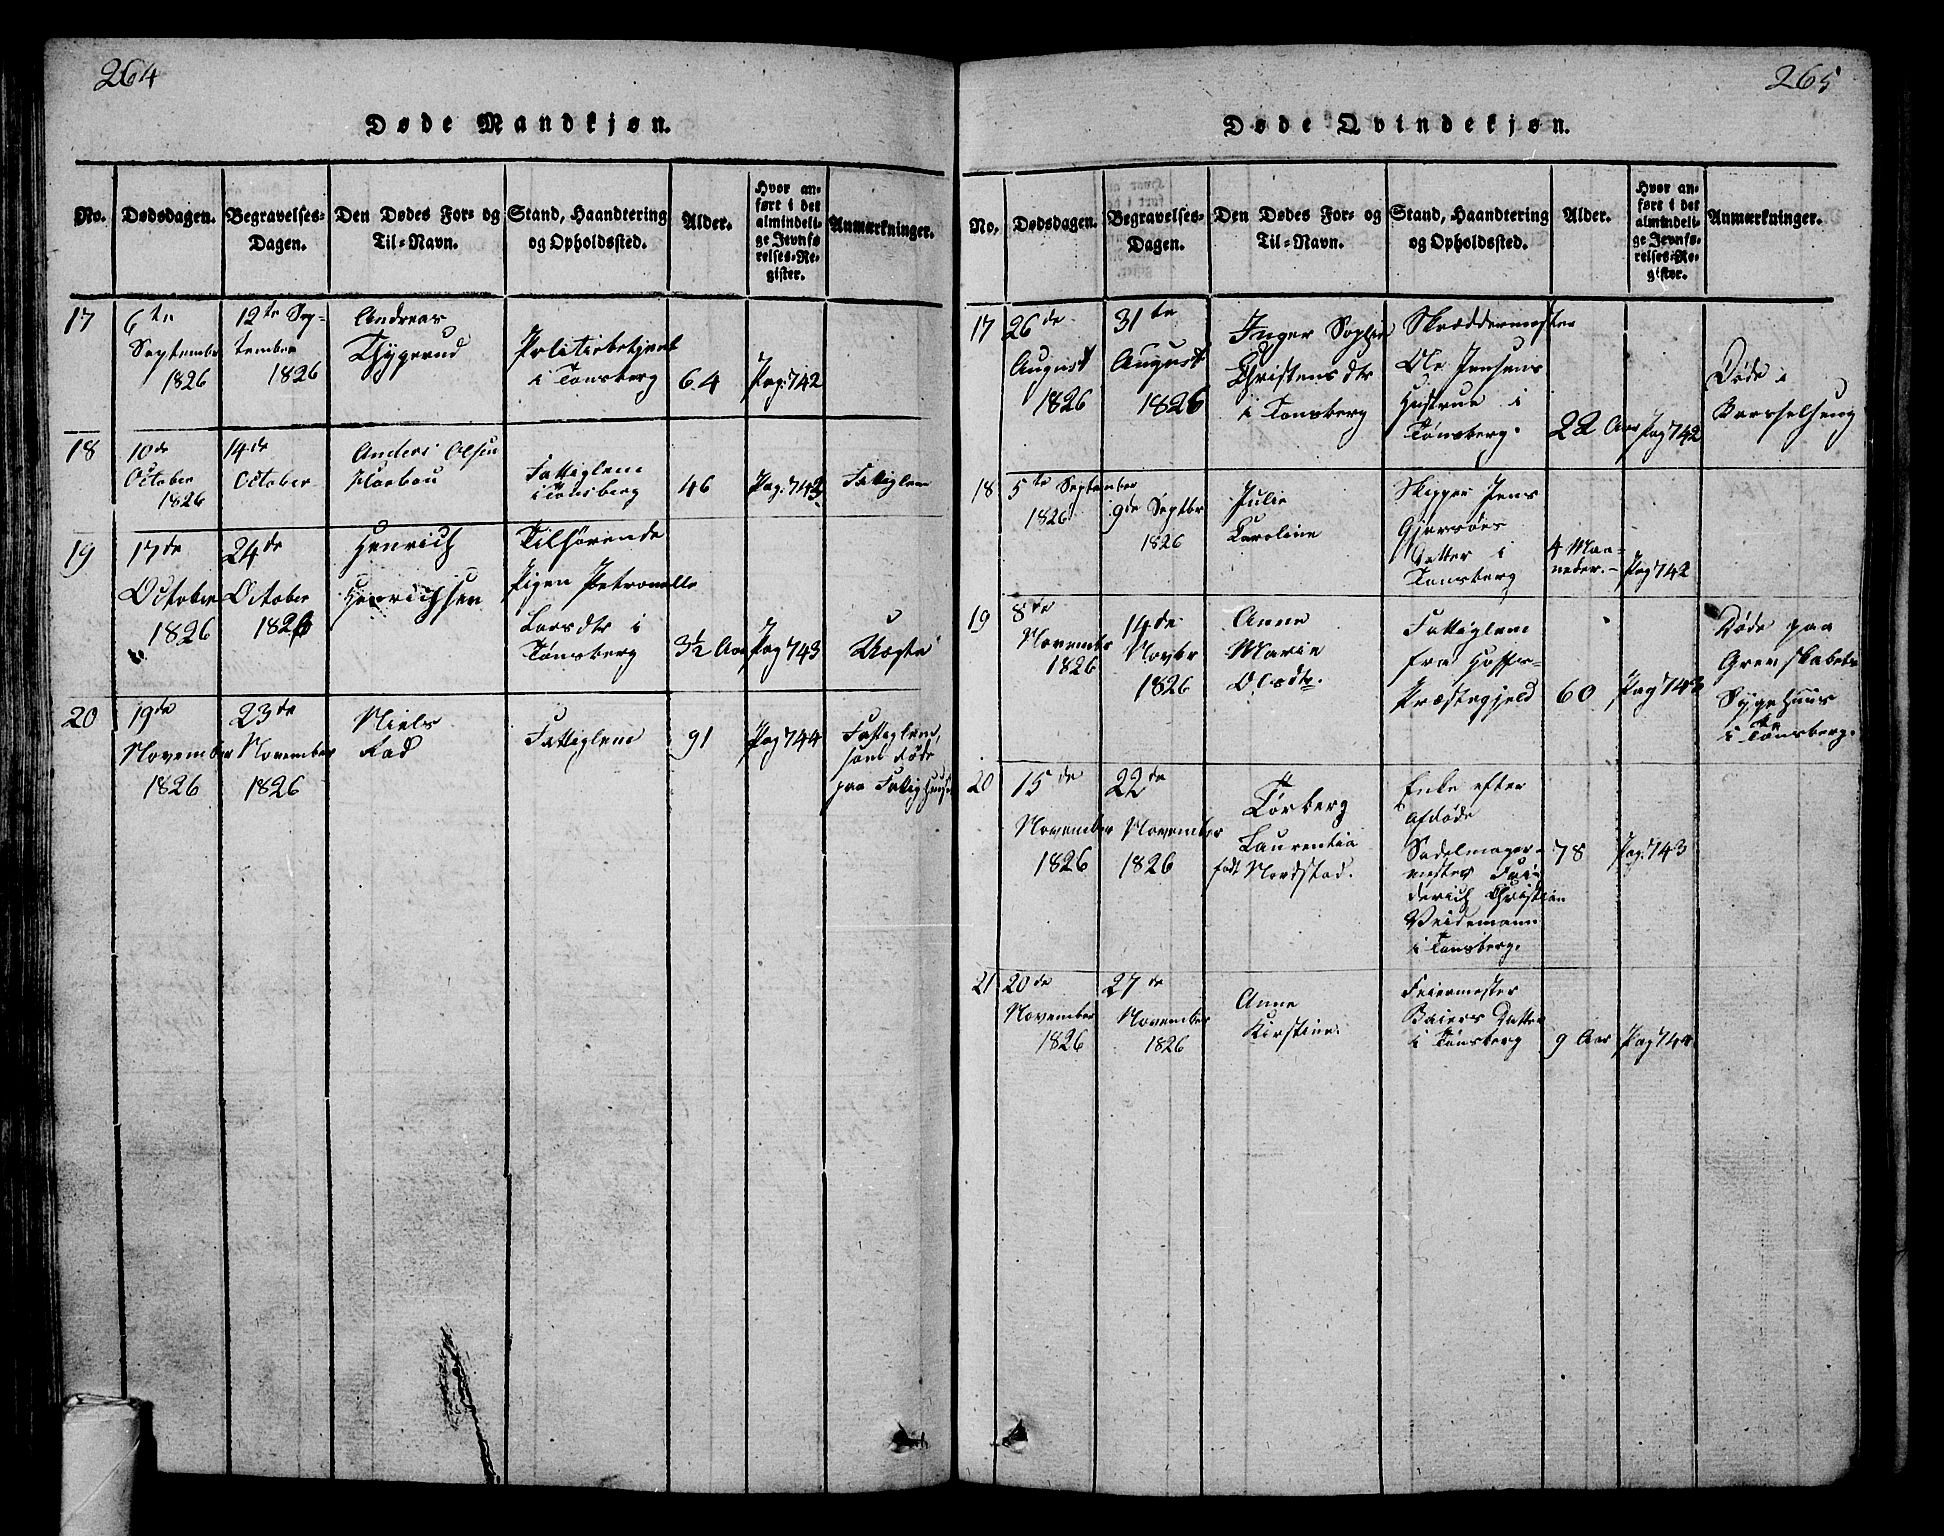 264
Døde Mandkjøn.
No.
Dødsdagen.
Begravelses-
Dagen.
Den Dødes For- og
Til-Navn.
Stand, Haandtering
og Opholdssted.
Alder.
Hvor an-
ført i det
almindeli-
ge Jevnfø
relses-Re-
gister.
Anmærkninger.
17
6te
September
1826
12te Sep-
tember
1826
Andreas
Thygerud
Politiebetjent
i Tønsberg
64
Pag: 742
18
10de
October
1826
14de
October
Anders Olsen
Fattiglem
i Tønsberg
46
Pag: 742
Fattiglem
19
17de
October
1826
24de
October
1826
Henrich
Henrichsen
Tilhørende
Pigen Petronelle
Larsdtr i
Tønsberg
3½ Aar
Pag 743
Uægte
20
19de
November
1826
23de
November
1826
Niels
Rad
Fattiglem
91
Pag 744
Fattiglem,
som døde
paa Fattighuset
265
Døde Qvindekjøn.
No.
Dødsdagen.
Begravelses-
Dagen.
Den Dødes For- og
Til-Navn.
Stand, Haandtering
og Opholdssted.
Alder.
Hvor an-
ført i det
almindeli-
ge Jevnfø-
relses-Re-
gister.
Anmærkninger.
17
26de
August
1826
31te
August
1826
Inger Sophie
Christensdtr
i Tønsberg
Skræddermester
Ole Jensens
Hustrue i
Tønsberg.
22 Aar
Pag 742
Døde i
Barselseng
18
5te September
1826
9de Septbr
1826
Julie
Karoline
Skipper Jens
Gjersøes
Datter i
Tønsberg
4 Maa-
neder.-
Pag 742
19
8de
November
1826
14de
Novbr
1826
Anne
Marie
Olsdtr.
Fattiglem
fra Hoffs-
Præstegjeld
60
Pag 743
Døde paa
Grevskabets
Sygehuus
i Tønsberg.
20
15de
November
1826
22de
November
1826
Torberg
Laurentia
født Nordstad.
Enke efter
afdøde
Sadelmager-
mester Frie
derich Christian
Weidemann
i Tønsberg.
78
Pag: 743
21
20de
November
1826
27de
November
1826
Anne
Kirstine.
Feiermester
Baiers Datter
i Tønsberg
9 Aar
Pag 744